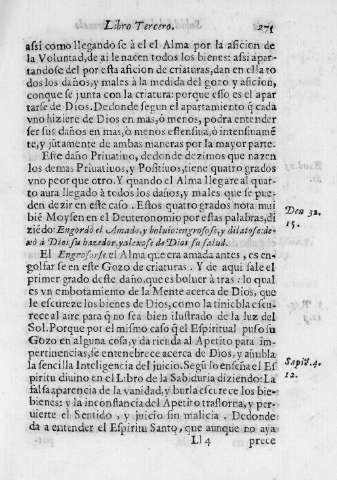 Libro Tercero. 271
assi como llegandose à el el Alma por la aficion de
la Voluntad, de ai le nacen todos los bienes: assi apar-
tandose del por esta aficion de criaturas, dan en ella to
dos los daños, y males à la medida del gozo y aficion,
conque se junta con la criatura: porque esso es el apar
tarse de Dios. Dedonde segun el apartamiento q̃ cada
vno hiziere de Dios en mas, ò menos, podra entender
ser sus daños en mas, ò menos estensiua, ò intensiuamẽ
te, y jũtamente de ambas maneras por la mayor parte.
Este daño Priuatiuo, dedonde dezimos que nazen
los demas Priuatiuos, y Positiuos, tiene quatro grados
vno peor que otro. Y quando el Alma llegare al quar
to aura llegado à todos los daños, y males que se pue
den dezir en este caso. Estos quatro grados nota mui
bié Moysen en el Deuteronomio por estas palabras, di
ziédo: Engordó el Amado, y boluio: engrosose, y dilatose: de-
xó à Dios su hazedor, y alexose de Dios su salud.
Den 32.
15.
El Engrosarse el Alma que era amada antes, es en-
golfarse en este Gozo de criaturas. Y de aqui sale el
primer grado deste daño, que es boluer à tras: lo qual
es vn embotamiento de la Mente acerca de Dios, que
le escureze los bienes de Dios, como la tiniebla escu-
rece al aire para q̃ no sea bien ilustrado de la luz del
Sol. Porque por el mismo caso q̃l Espiritual puso su
Gozo en alguna cosa, y da rienda al Apetito para im-
pertinencias, se entenebrece acerca de Dios, y añubla
la sencilla Inteligencia del juicio. Segũ lo enseña el Es
piritu diuino en el Libro de la Sabiduria diziendo: La
falsa aparencia de la vanidad, y burla escurece los bie-
bienes: y la inconstancia del Apetito trastorna, y per-
uierte el Sentido, y juicio sin malicia. Dedonde
da a entender el Espiritu Santo, que aunque no aya
Sapiẽ. 4.
12.
Ll 4 prece